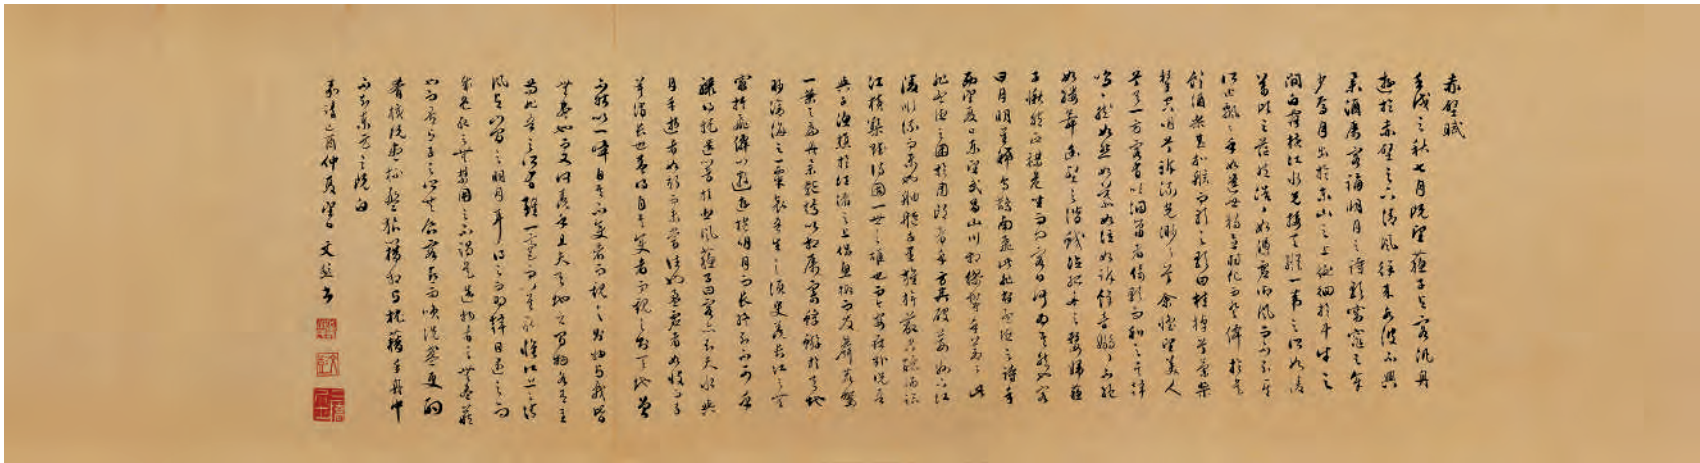 赤壁賦
壬戌之秋七月既望蘇子与客汎舟
遊於赤壁之下清風徐来水波不興
舉酒属客誦明月之詩歌窈窕之章
少焉月出於東山之上徘徊於斗牛之
間白露橫江水光接天縱一葦之所如凌
萬頃之茫然浩浩乎如憑虛御風而不知其
所止飄飄乎如遺世獨立羽化而登僊於是
飲酒樂甚扣舷而歌之歌曰桂棹兮蘭槳
擊空明兮泝流光渺渺兮余懷望美人
兮天一方客有吹洞簫者倚歌而和之其聲
嗚嗚然如怨如慕如泣如訴餘音嫋嫋不絕
如縷舞幽壑之潛蛟泣孤舟之嫠婦蘇
子愀然正襟危坐而問客曰何為其然也客
曰月明星稀烏鵲南飛此非孟德之詩乎
西望夏口東望武昌山川相繆鬱乎蒼蒼此
非孟德之困於周郎者乎方其破荊州下江
陵順流而東也舳艫千里旌旗蔽空釃酒臨
江橫槊賦詩固一世之雄也而今安在哉況吾
與子漁樵於江渚之上侶魚蝦而友麋鹿駕
一葉之扁舟舉匏樽以相屬寄蜉蝣於天地
眇滄海之一粟哀吾生之須臾羨長江之無
窮挾飛僊以遨遊抱明月而長終知不可乎
驟得託遺響於悲風蘇子曰客亦知夫水與
月乎逝者如斯而未嘗往也盈虛者如彼而卒
莫消長也蓋將自其變者而觀之則天地曾
不能以一瞬自其不變者而觀之則物與我皆
無盡也而又何羨乎且夫天地之間物各有主
苟非吾之所有雖一毫而莫取惟江上之清
風與山間之明月耳得之而為聲目遇之而
成色取之無禁用之不竭是造物者之無盡藏
也而吾與子之所共食客喜而笑洗盞更酌
肴核既盡杯盤狼藉相與枕藉乎舟中
不知東方之既白
嘉靖己酉仲夏望日 文彭書